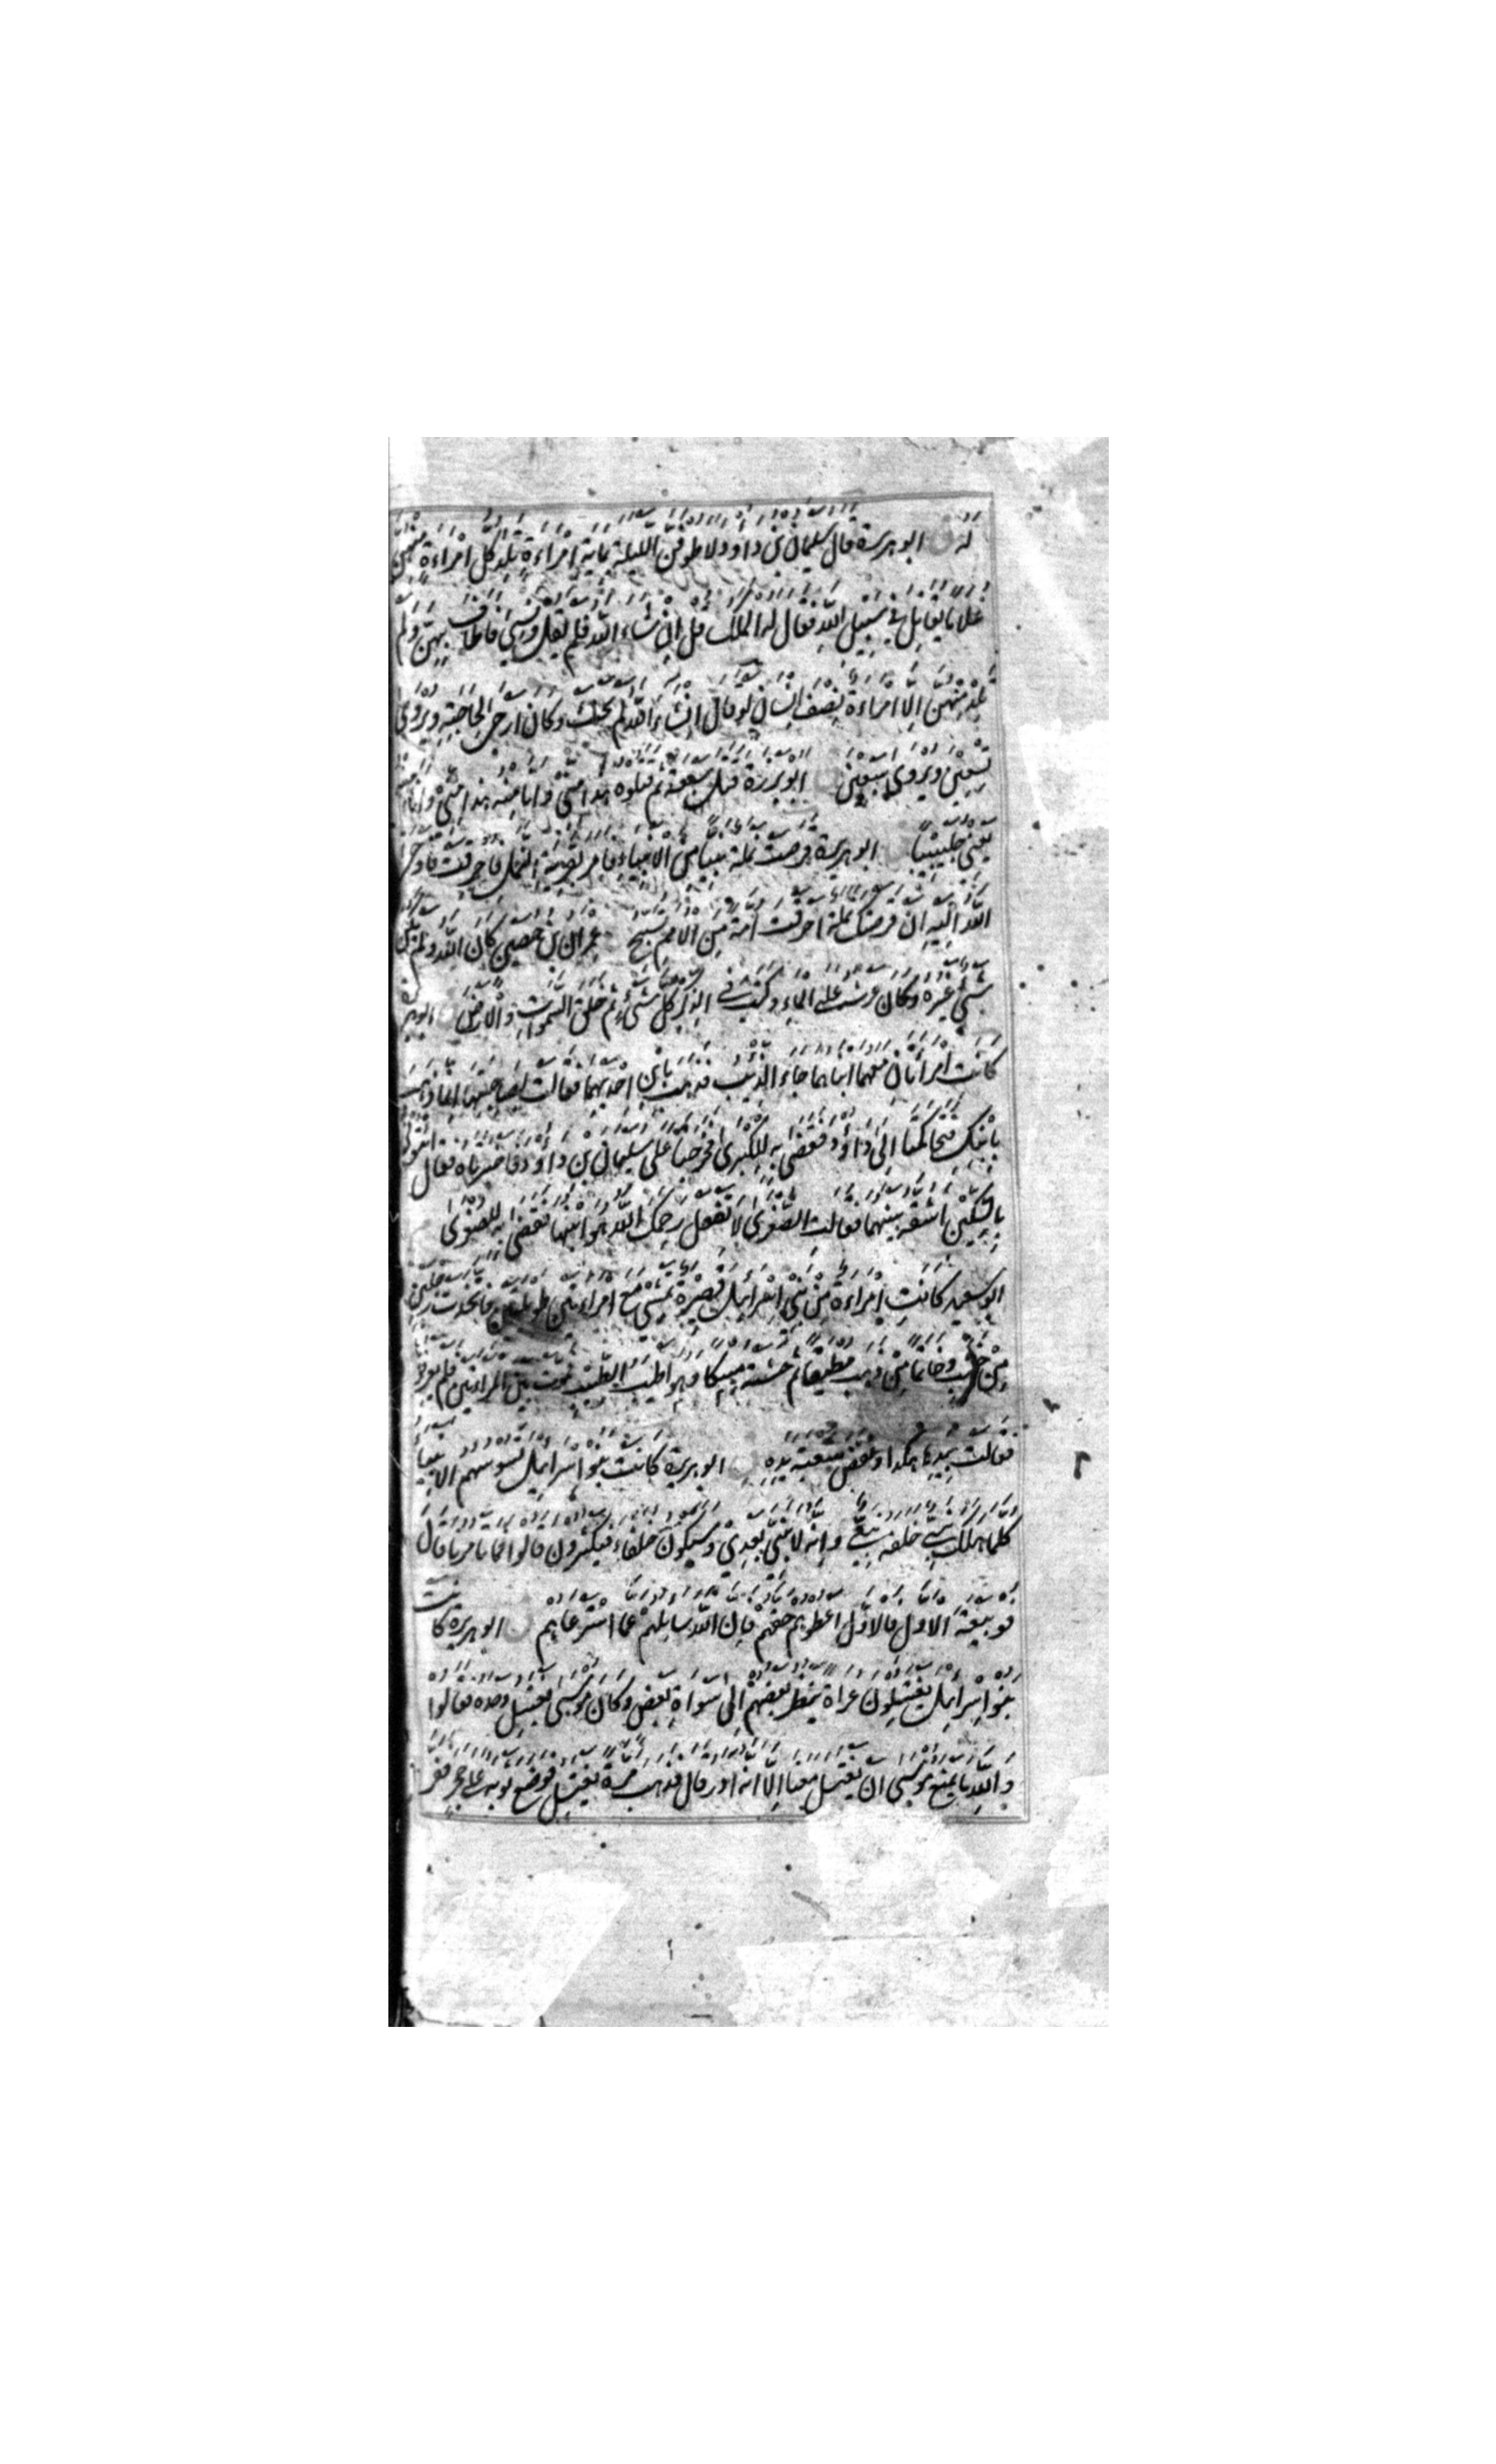 له ق ابو هريرة قال سليمان بن داود لاطوفن الليلة بماية امراءة تلد كل امراءة منهن
غلاما يقاتل في سبيل الله فقال له الملك قل ان شاء الله فلم يقل ونسي فاطاف بهن ولم
تلد منهن الا امراءة نصف انسان لو قال انشاء الله لم يحنث وكان ارجى لحاجته ويروى
تسعين ويروى سبعين ابو برزة قتل سبعة ثم قتلوه هذا مني وانا منه هذا مني وانا منه
يعني جليبيبا ابو هريرة قرصت نملة نبيا من الانبياء فامر بقرية النمل فاحرقت فاوحى
الله اليه ان قرصتك نملة احرقت امة من الامم تسبح عمران بن حصين كان الله ولم يكن
شيء غيره وكان عرشه على الماء وكتب في الذكر كل شيء ثم خلق السموات والارض ابو هريرة
كانت امراتان معهما ابناهما جاء الذئب فذهب بابن احديهما فقالت لصاحبتها انما ذهب
بابنك فتحاكمتا الى داود فقضى به للكبرى فخرجتا على سليمان بن داود فاخبرتاه فقال ائتوني
بالسكين اشقه بينهما فقالت الصغرى لا تفعل رحمك الله هو ابنها فقضى به للصغرى
ابو سعيد كانت امراءة من بني اسرائيل قصيرة تمشي مع امراءتين طويلتين فاتخذت رجلين
من خشب وخاتما من ذهب مطبقا ثم حشته مسكا وهو اطيب الطيب فمرت بين المراءتين فلم يعرفوها
فقالت بيدها هكذا ونفض شعبة يده ابو هريرة كانت بنو اسرائيل تسوسهم الانبياء
كلما هلك نبي خلفه نبي وانه لا نبي بعدي وسيكون خلفاء فيكثرون قالوا فما تامرنا قال
فو ببيعة الاول فالاول اعطوهم حقهم فان الله سايلهم عما استرعاهم ق ابو هريرة كانت
بنو اسرائيل يغتسلون عراة ينظر بعضهم الى سواة بعض وكان موسى يغتسل وحده فقالوا
والله ما يمنع موسى ان يغتسل معنا الا انه ادر قال فذهب مرة يغتسل فوضع ثوبه على حجر ففر